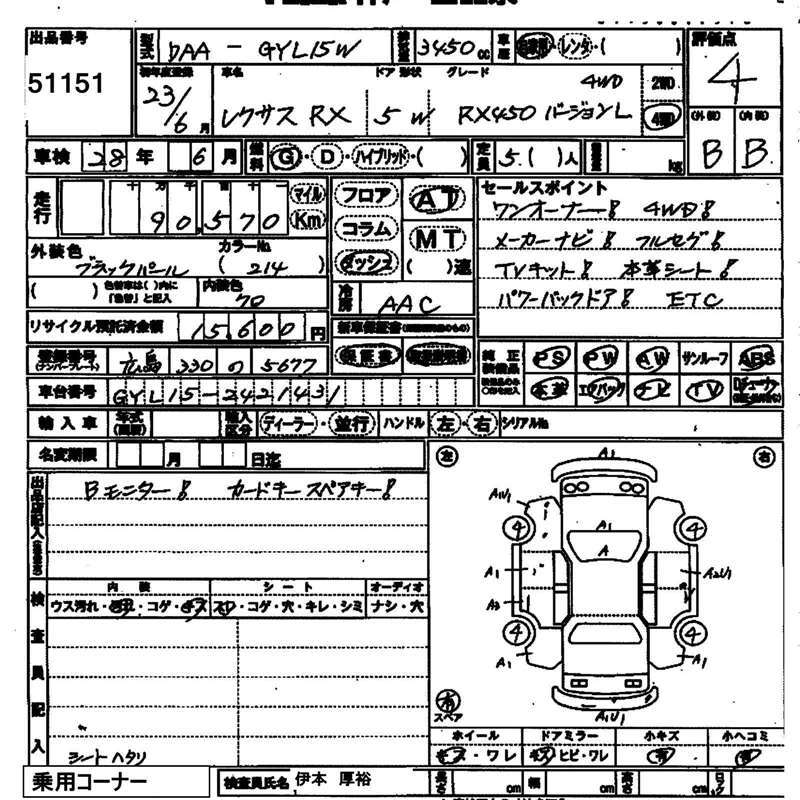 出品番号 型式 DAA - GYL15W 排気量 3450cc 車歴 自家用・レンタ・( ) 評価点
51151 初年度登録 車名 ドア 形状 グレード 4WD 2WD 4
23/6月 レクサス RX 5 W RX450 バージョンL 4WD (外装) (内装)
車検 28年 6月 燃料 G・D・ハイブリッド・( ) 定員 5.( )人 積載量 kg B B
走行 十 万 千 百 十 一 マイル フロア AT セールスポイント
90,570 Km コラム MT ワンオーナー! 4WD!
外装色 カラーNo. ダッシュ ( )速 メーカーナビ! フルセグ!
ブラックパール ( 214 ) TVキット! 本革シート!
( ) 色替車は( )内に「色替」と記入 内装色 70 冷房 AAC パワーバックドア! ETC
リサイクル預託済金額 15,600円 新車保証書
登録番号 (ナンバープレート) 広島 330 の 5677 保証書 純正装備品 PS PW AW サンルーフ ABS
車台番号 GYL15-2421431 本革 エアバッグ ナビ TV
輸入車 年式 輸入区分 ディーラー・並行 ハンドル 左・右 シリアルNo.
名変期限 月 日迄 左 右
出品店記入 Bモニター! カードキースペアキー!
検査員記入 内装 シート オーディオ
ウス汚れ・汚れ・コゲ・キズ スレ・コゲ・穴・キレ・シミ ナシ・穴
A1
A1U1
4 A1 4
A
A1 A2U1
A2
4 4
A1 A1
有 スペア A1U1
ホイール ドアミラー 小キズ 小ヘコミ
シートヘタリ キズ・ワレ キズ・ヒビ・ワレ 有 有
乗用コーナー 検査員氏名 伊本 厚裕 長さ cm 幅 cm 高さ cm